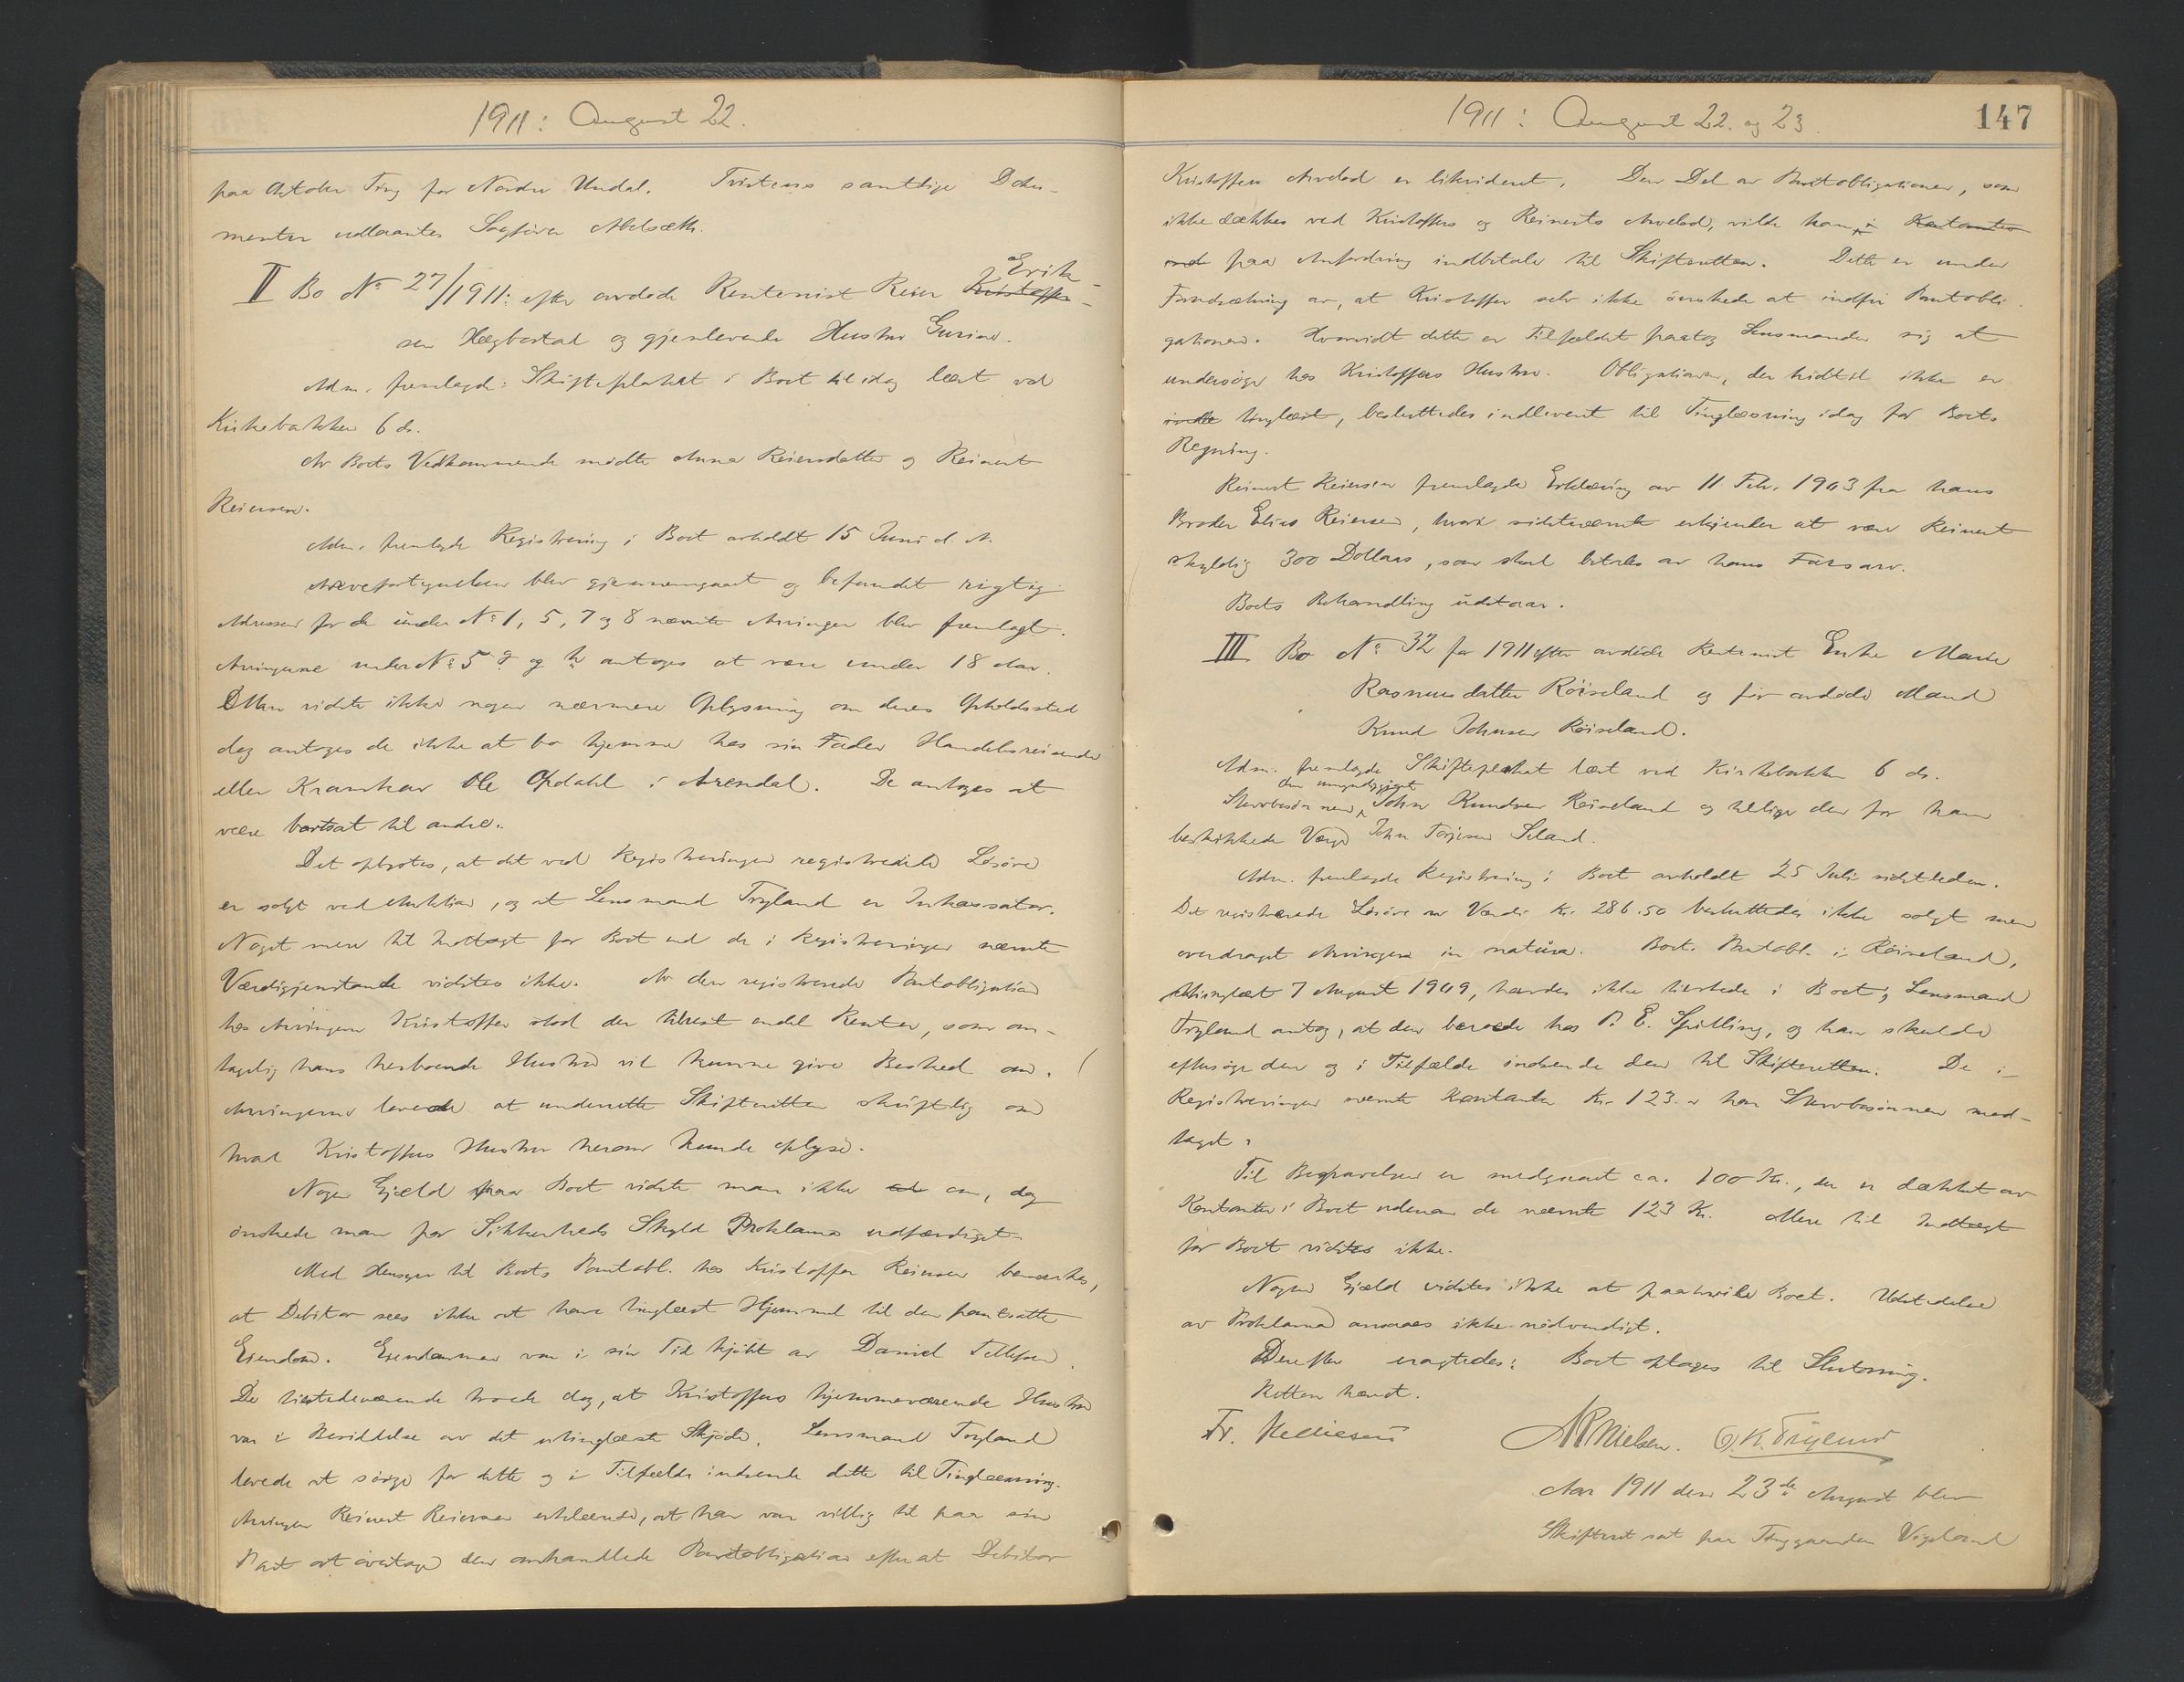 1911: August 22.
paa Oktober Ting for Nordre Undal. Tvistens samtlige Doku-
menter udlaantes Sagfører Abelsæth.
II Bo No 27/1911: efter avdøde Rentenist Reier Kristoffer- Erik-
sen Hægbostad og gjenlevende Hustru Gurine.
Adm. fremlagde: Skifteplakat i Boet til idag læst ved
Kirkebakken 6 ds.
Av Boets Vedkommende mødte Anna Reiersdatter og Reinert
Reiersen.
Adm. fremlagde Registrering i Boet avholdt 15 Juni d. A.
Arvefortegnelsen blev gjennemgaat og befundet rigtig
Adressen for de under No 1, 5, 7 og 8 nævnte Arvinger blev fremlagt.
Arvingerne under No 5 g og h antoges at være under 18 Aar.
Man vidste ikke nogen nærmere Oplysning om deres Opholdssted
dog antoges de ikke at bo hjemme hos sin Fader Handelsreisende
eller Kramkar Ole Opdahl i Arendal. De antoges at
være bortsat til andre.
Det oplystes, at det ved Registreringen registrerede Løsøre
er solgt ved Auktion, og at Lensmand Tryland er Inkassator.
Noget mere til Indtægt for Boet end de i Registreringen nævnte
Værdigjenstande vidstes ikke. Av den registrerede Pantobligation
hos Arvingen Kristoffer stod der tilrest endel Renter, som an-
tagelig hans herboende Hustru vil kunne give Besked om.
Arvingerne lovede at underrette Skifteretten skriftlig om
hvad Kristoffers Hustru herom kunde oplyse.
Nogen Gjæld paa Boet vidste man ikke om, dog
ønskede man for Sikkerheds Skyld Proklama udfærdiget.
Med Hensyn til Boets Pantobl. hos Kristoffer Reiersen bemærkes,
at Debitor sees ikke at have tinglæst Hjemmel til den pantsatte
Eiendom. Eiendommen var i sin Tid kjøbt av Daniel Tellefsen.
De tilstedeværende troede dog, at Kristoffers hjemmeværende Hustru
var i Besiddelse av det utinglæste Skjøde. Lensmand Tryland
lovede at sørge for dette og i Tilfælde indsende dette til Tinglæsning.
Arvingen Reinert Reiersen erklærede, at han var villig til paa sin
Part at overtage den omhandlede Pantobligation efterat Debitor
1911: August 22. og 23.
147
Kristoffers Arvelod er likvideret. Den Del av Pantobligationen, som
ikke dækkes ved Kristoffers og Reinerts Arvelod, vilde han i Kontanter
paa Anfordring indbetale til Skifteretten. Dette er under
Forudsætning av, at Kristoffer selv ikke ønskede at indfri Pantobli-
gationen. Hvorvidt dette er Tilfældet paatog Lensmanden sig at
undersøge hos Kristoffers Hustru. Obligationen, der hidtil ikke er
tinglæst, besluttedes indleveret til Tinglæsning idag for Boets
Regning.
Reinert Reiersen fremlagde Erklæring av 11 Febr. 1903 fra hans
Broder Elias Reiersen, hvori sidstnævnte erkjender at være Reinert
skyldig 300 Dollars, som skal betales av hans Farsarv.
Boets Behandling udstaar.
III Bo No 32 for 1911 efter avdøde Rentenist Enke Marte
Rasmusdatter Røiseland og før avdøde Mand
Knud Johnsen Røiseland.
Adm. fremlagde Skifteplakat læst ved Kirkebakken 6 ds.
den umyndiggjorte
Stervbosønnen John Knudsen Røiseland og tillige den for ham
beskikkede Værge John Torjesen Seland.
Adm. fremlagde Registrering i Boet avholdt 25 Juli sidstleden.
Det registrerede Løsøre av Værdi Kr. 286.50 besluttedes ikke solgt men
overdraget Arvingen in natura. Boets Pantobl. i Røiseland,
tinglæst 7 August 1909, havdes ikke tilstede i Boet, Lensmand
Tryland antog, at den beroede hos P. E. Spilling, og han skulde
eftersøge den og i Tilfælde indsende den til Skifteretten. De i
Registreringen nævnte Kontanter Kr. 123.- har Stervbosønnen mod-
taget.
Til Begravelsen er medgaaet ca. 100 Kr., der er dækket av
Kontanter i Boet udenom de nævnte 123 Kr. Mere til Indtægt
for Boet vidstes ikke.
Nogen Gjæld vidstes ikke at paahvile Boet. Udstedelse
av Proklama ansaaes ikke nødvendigt.
Derefter eragtedes: Boet optages til Slutning.
Retten hævet.
Fr. Melliesen NP Nielsen. O. K. Tryland
Aar 1911 den 23de August blev
Skifteret sat paa Thinggaarden Vigeland